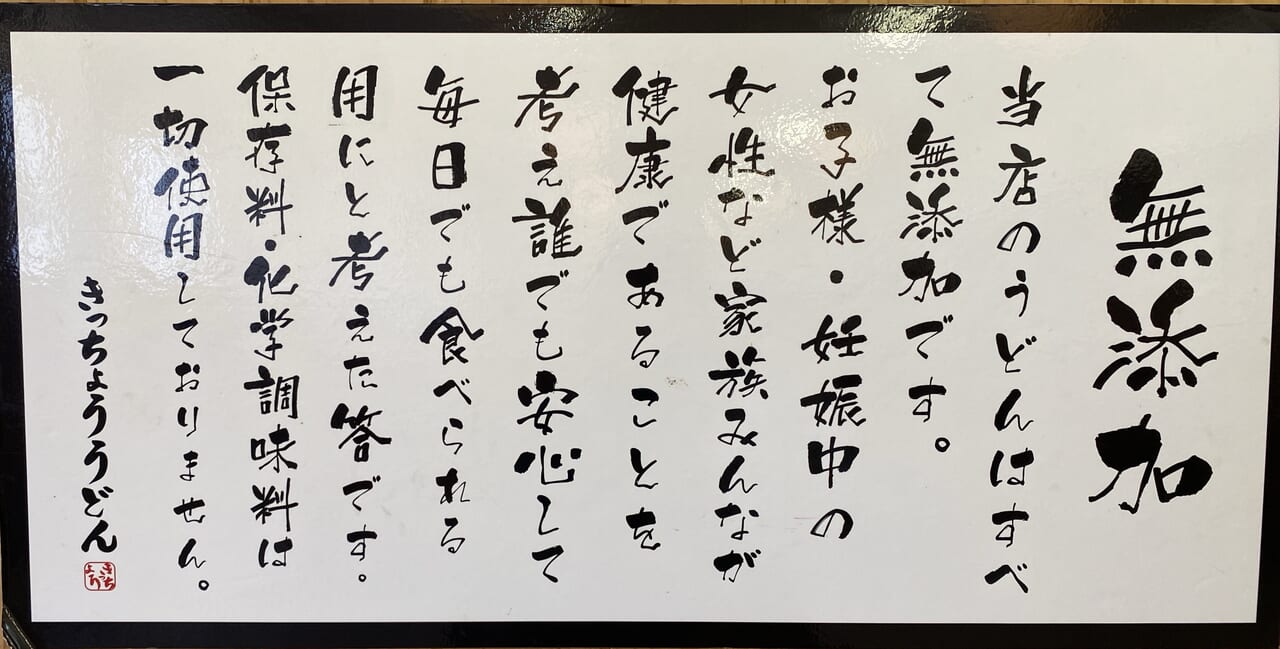 無添加
当店のうどんはすべ
て無添加です。
お子様・妊娠中の
女性など家族みんなが
健康であることを
考え誰でも安心して
毎日でも食べられる
用にと考えた答です。
保存料・化学調味料は
一切使用しておりません。
きっちょううどん
きっちょう